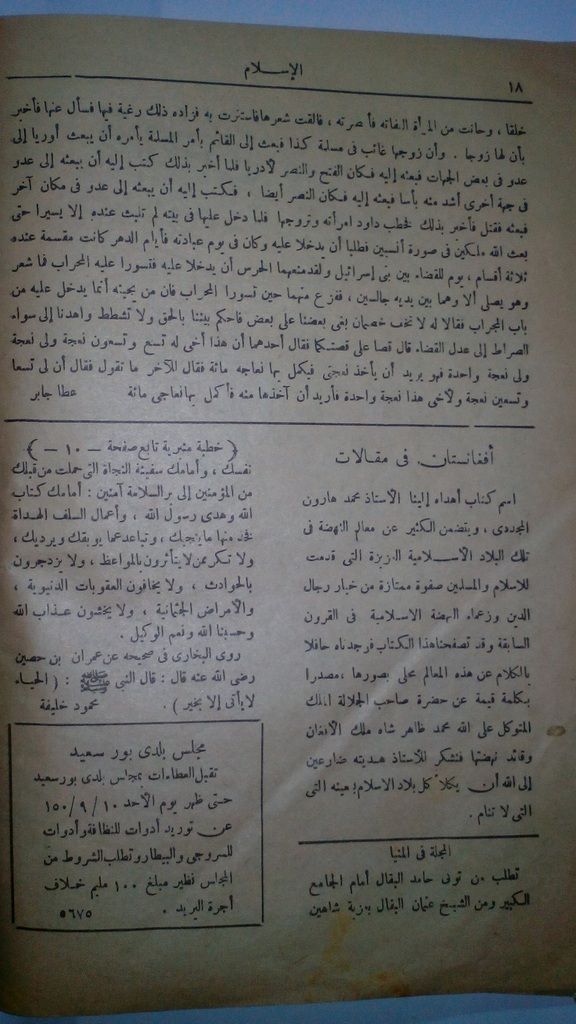 الإسلام
١٨
خلقا ، وحانت من المرأة التفاتة فأبصرته ، فألقت شعرها فاستترت به فزاده ذلك رغبة فيها فسأل عنها فأخبر
بأن لها زوجا . وأن زوجها غائب فى مسلحة كذا فبعث إلى القائم بأمر المسلحة يأمره أن يبعث أوريا إلى
عدو فى بعض الجهات فبعثه إليه فكان الفتح والنصر لأدريا فلما أخبر بذلك كتب إليه أن يبعثه إلى عدو
فى جهة أخرى أشد منه بأسا فبعثه إليه فكان النصر أيضا ، فكتب إليه أن يبعثه إلى عدو فى مكان آخر
فبعثه فقتل فأخبر بذلك فخطب داود امرأته وتزوجها فلما دخل عليها فى بيته لم تلبث عنده إلا يسيرا حتى
بعث الله ملكين فى صورة أنسيين فطلبا أن يدخلا عليه وكان فى يوم عبادته فأيام الدهر كانت مقسمة عنده
ثلاثة أقسام ، يوم للقضاء بين بنى إسرائيل ولقد منعهما الحرس أن يدخلا عليه فتسورا عليه المحراب فما شعر
وهو يصلى ألا وهما بين يديه جالسين ، ففزع منهما حين تسورا المحراب فان من يجيئه أنما يدخل عليه من
باب المحراب فقالا له لا تخف خصمان بغى بعضنا على بعض فاحكم بيننا بالحق ولا تشطط واهدنا إلى سواء
الصراط إلى عدل القضاء قال قصا على قصتكما فقال أحدهما أن هذا أخى له تسع وتسعون نعجة ولى نعجة
ولى نعجة واحدة فهو يريد أن يأخذ نعجتى فيكمل بها نعاجه مائة فقال للآخر ما تقول فقال أن لى تسعا
وتسعين نعجة ولأخى هذا نعجة واحدة فأريد أن آخذها منه فأكمل بها نعاجى مائة عطا جابر
أفغانستان فى مقالات
اسم كتاب أهداه إلينا الأستاذ محمد هارون
المجددى ، ويتضمن الكثير عن معالم النهضة فى
تلك البلاد الاسلامية العزيزة التى قدمت
للاسلام والمسلمين صفوة ممتازة من خيار رجال
الدين وزعماء النهضة الاسلامية فى القرون
السابقة وقد تصفحنا هذا الكتاب فوجدناه حافلا
بالكلام عن هذه المعالم محلى بصورها ، مصدرا
بكلمة قيمة عن حضرة صاحب الجلالة الملك
المتوكل على الله محمد ظاهر شاه ملك الأفغان
وقائد نهضتها فنشكر للأستاذ هديته ضارعين
إلى الله أن يكلأ كل بلاد الاسلام بعينه التى
التى لا تنام .
المجلة فى المنيا
تطلب من تونى حامد البقال أمام الجامع
الكبير ومن الشيخ عثمان البقال بعزبة شاهين
( خطبة منبرية تابع صفحة — ١٠ — )
نفسك ، وأمامك سفينة النجاة التى حملت من قبلك
من المؤمنين إلى بر السلامة آمنين : أمامك كتاب
الله وهدى رسول الله ، وأعمال السلف الهداة
فخذ منها ما ينجيك ، وتباعد عما يوبقك ويرديك ،
ولا تكن ممن لا يتأثرون بالمواعظ ، ولا يزدجرون
بالحوادث ، ولا يخافون العقوبات الدنيوية ،
والأمراض الجثمانية ، ولا يخشون عذاب الله
وحسبنا الله ونعم الوكيل .
روى البخارى فى صحيحه عن عمران بن حصين
رضى الله عنه قال : قال النبى ﷺ : ( الحياء
لا يأتى إلا بخير ) . محمود خليفة
مجلس بلدى بور سعيد
تقبل العطاءات بمجلس بلدى بورسعيد
حتى ظهر يوم الأحد ١٠ / ٩ / ١٥٠
عن توريد أدوات للنظافة وأدوات
للسروجى والبيطار وتطلب الشروط من
المجلس نظير مبلغ ١٠٠ مليم خلاف
أجرة البريد . ٥٦٧٥